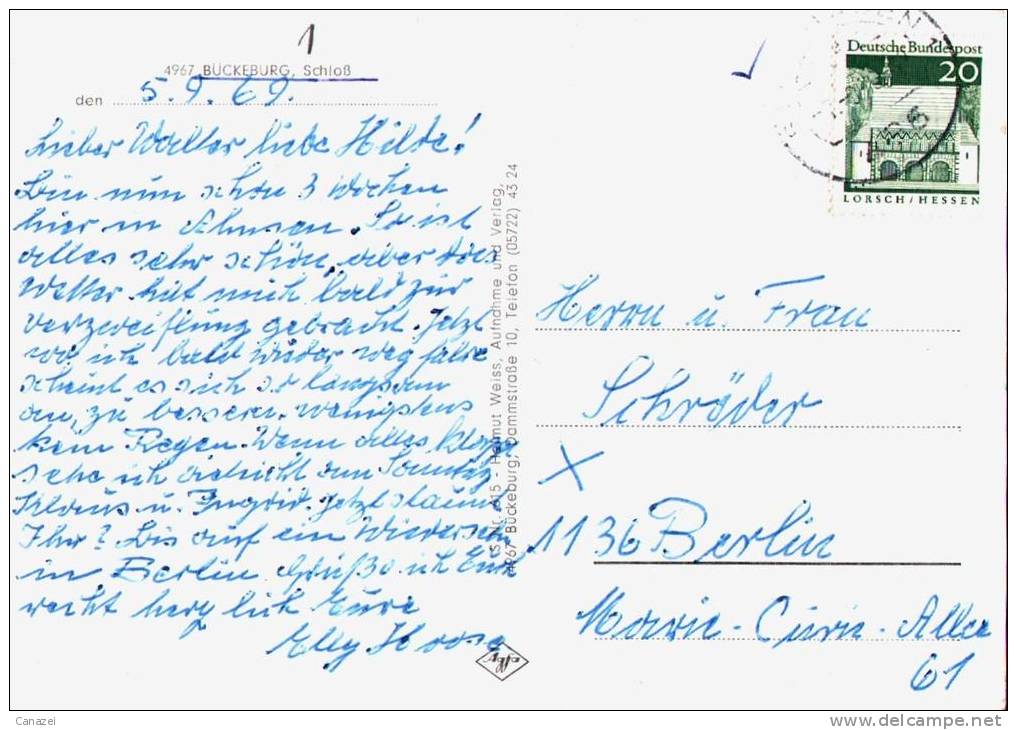 1
4967 BÜCKEBURG, Schloß
den 5.9.69.
Lieber Walter liebe Hilde!
Bin nun schon 3 Wochen
hier in Ahnsen. So ist
alles sehr schön, aber das
Wetter hat mich bald zur
verzweiflung gebracht. Jetzt
wo ich bald wieder weg fahre
scheint es sich so langsam
an, zu bessern. wenigstens
kein Regen. Wenn alles klappt
sehe ich vielleicht am Sonntag
Klaus u. Ingrid. Jetzt staunt
Ihr? Bis auf ein Wiedersehn
in Berlin Grüße ich Euch
recht herzlich Eure
Elly
Agfa
S. Nr. 415 - Helmut Weiss, Aufnahme und Verlag,
4967 Bückeburg, Dammstraße 10, Telefon (05722) 43 24
Deutsche Bundespost
20
LORSCH/HESSEN
Herrn u. Frau
Schröder
1136 Berlin
Marie-Curie-Allee
61
Canazei
www.delcampe.net